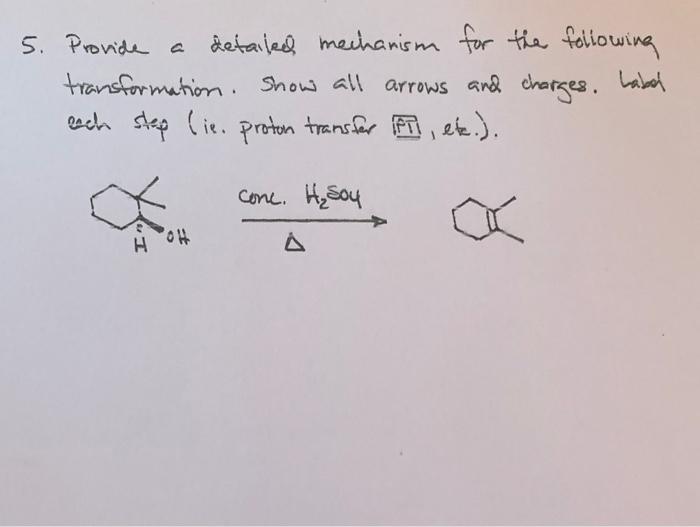 5. Provide a detailed mechanism for the following
transformation. Show all arrows and charges. Label
each step (ie. proton transfer PT, etc.).
conc. H₂SO₄
Δ
H OH